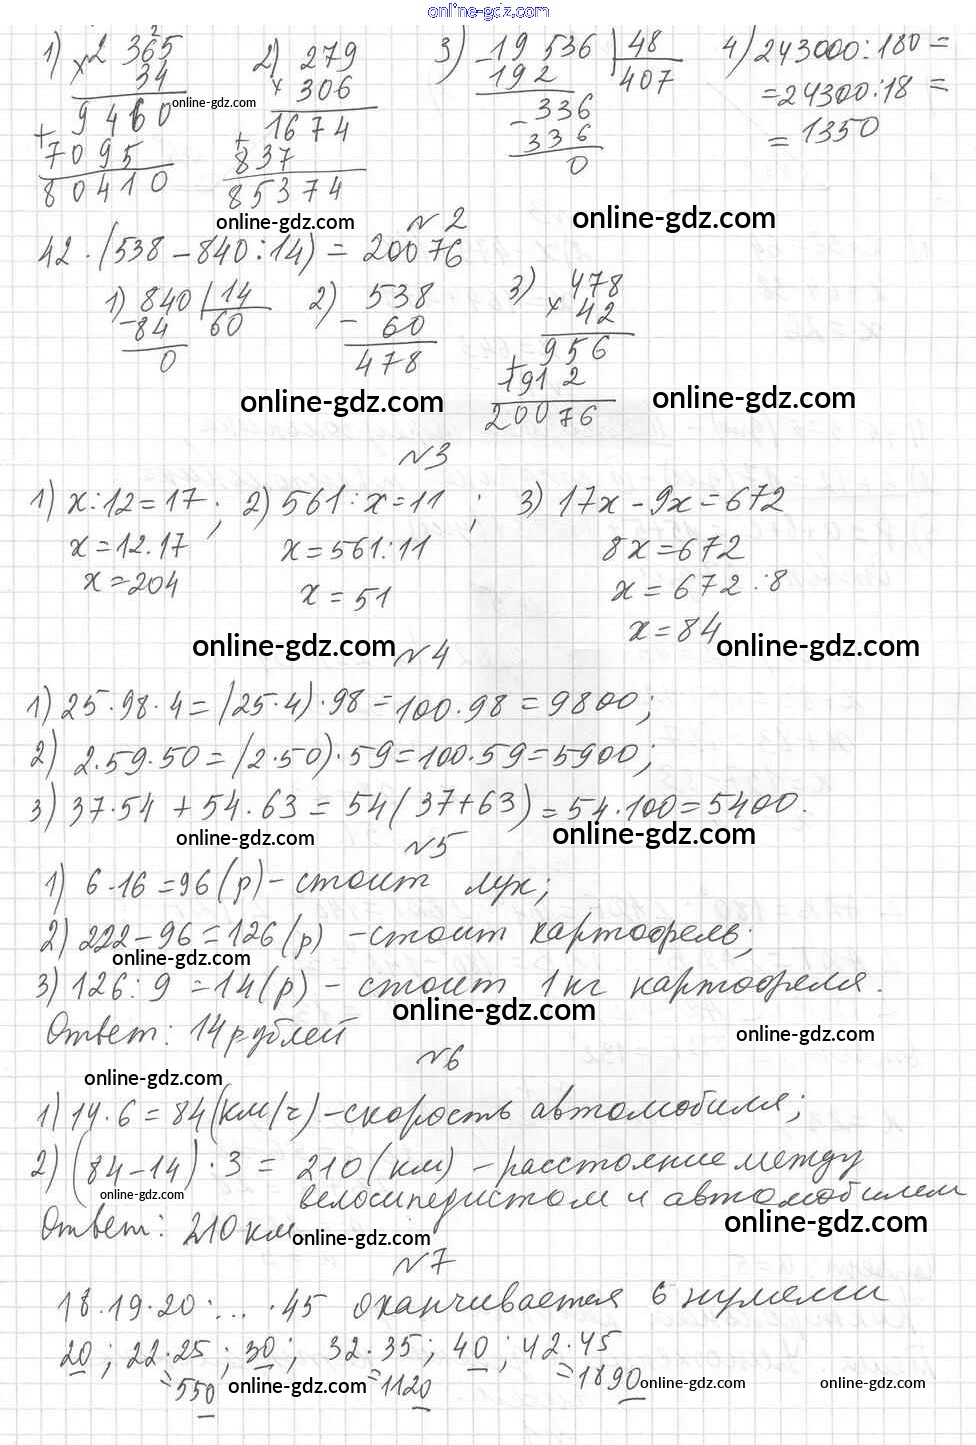 online-gdz.com
1) 2 365 2) 279 3) 19 536 | 48 4) 243000:180 =
× 34 × 306 - 192 407 =24300:18 =
9460 online-gdz.com 1674 - 336 = 1350
+ 7095 + 837 336
80410 85374 0
online-gdz.com online-gdz.com
№2
42 · (538 - 840:14) = 20076
1) 840 | 14 2) 538 3) 478
- 84 60 - 60 × 42
0 478 956
+ 1912
20076
online-gdz.com online-gdz.com
№3
1) x:12=17; 2) 561:x=11; 3) 17x-9x=672
x=12·17 x=561:11 8x=672
x=204 x=51 x=672:8
x=84
online-gdz.com online-gdz.com
№4
1) 25·98·4=(25·4)·98=100·98=9800;
2) 2·59·50=(2·50)·59=100·59=5900;
3) 37·54+54·63=54(37+63)=54·100=5400.
online-gdz.com online-gdz.com
№5
1) 6·16=96(р)-стоит лук;
2) 222-96=126(р) -стоит картофель;
online-gdz.com
3) 126:9=14(р) - стоит 1кг картофеля.
online-gdz.com
Ответ: 14 рублей
online-gdz.com
№6
online-gdz.com
1) 14·6=84(км/ч)-скорость автомобиля;
2) (84-14)·3= 210(км) -расстояние между
online-gdz.com велосипедистом и автомобилем
Ответ: 210 км
online-gdz.com online-gdz.com
№7
18·19·20·...·45 оканчивается 6 нулями
20; 22·25; 30; 32·35; 40; 42·45
=550 =1120 =1890
online-gdz.com online-gdz.com online-gdz.com